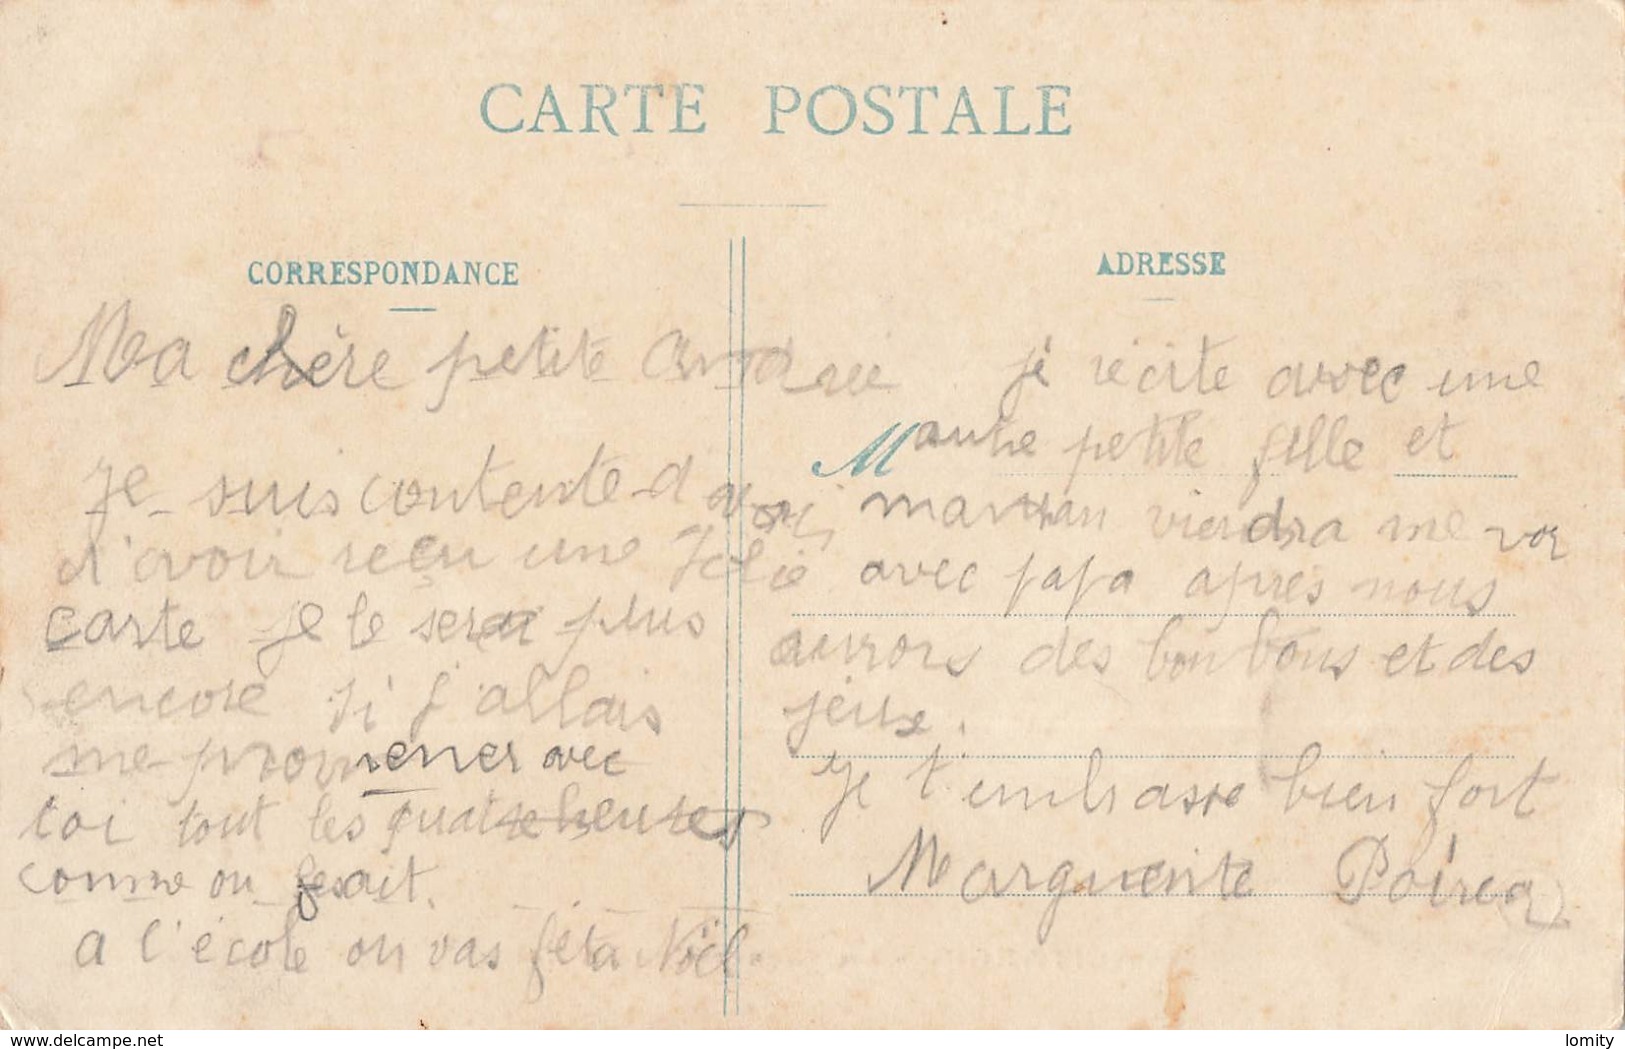 CARTE POSTALE
CORRESPONDANCE
ADRESSE
Ma chère petite Andrée
Je suis contente d avoir
d'avoir reçu une Jolie
carte je le serai plus
encore si j'allais
me promener avec
toi tout les quatre heures
comme on fesait.
a l'école on vas féta Noël.
je récite avec une
M autre petite fille et
maman viendra me voir
avec papa après nous
aurons des bonbons et des
jeux.
Je t'embrasse bien fort
Marguerite
delcampe.net
lomity